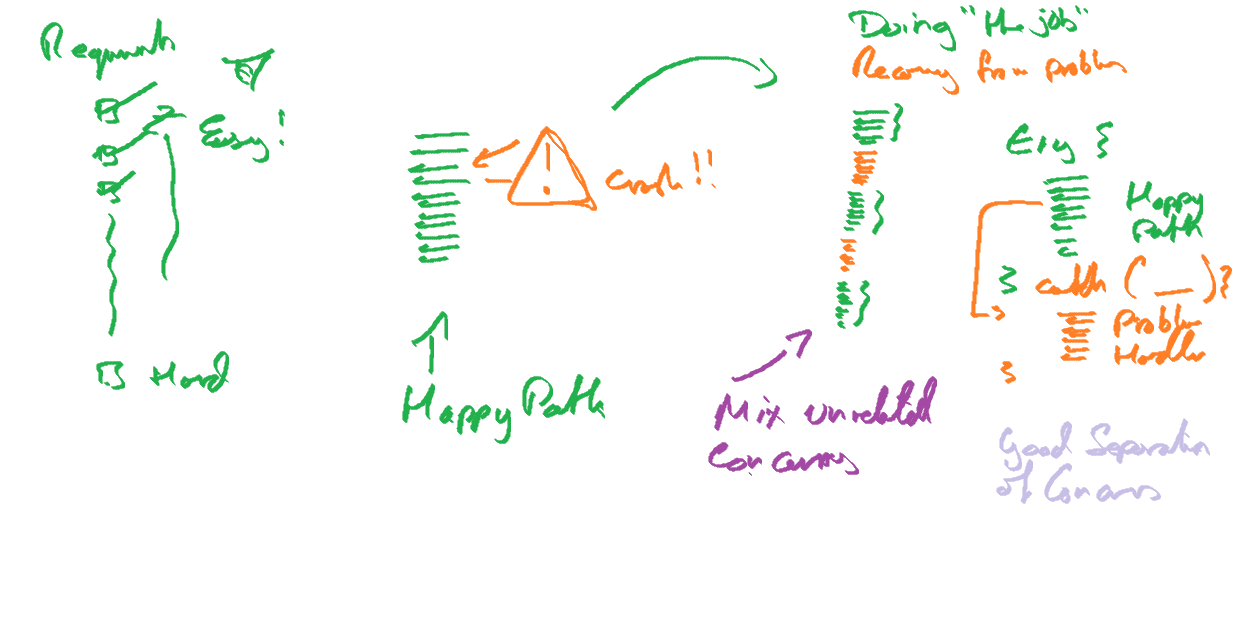 Requirements
Easy!
Hard
Crash!!
Happy Path
Doing "the job"
Recovery from problem
Mix unrelated
concerns
try {
Happy
Path
} catch ( __ ) {
Problem
Handler
}
Good Separation
of Concerns